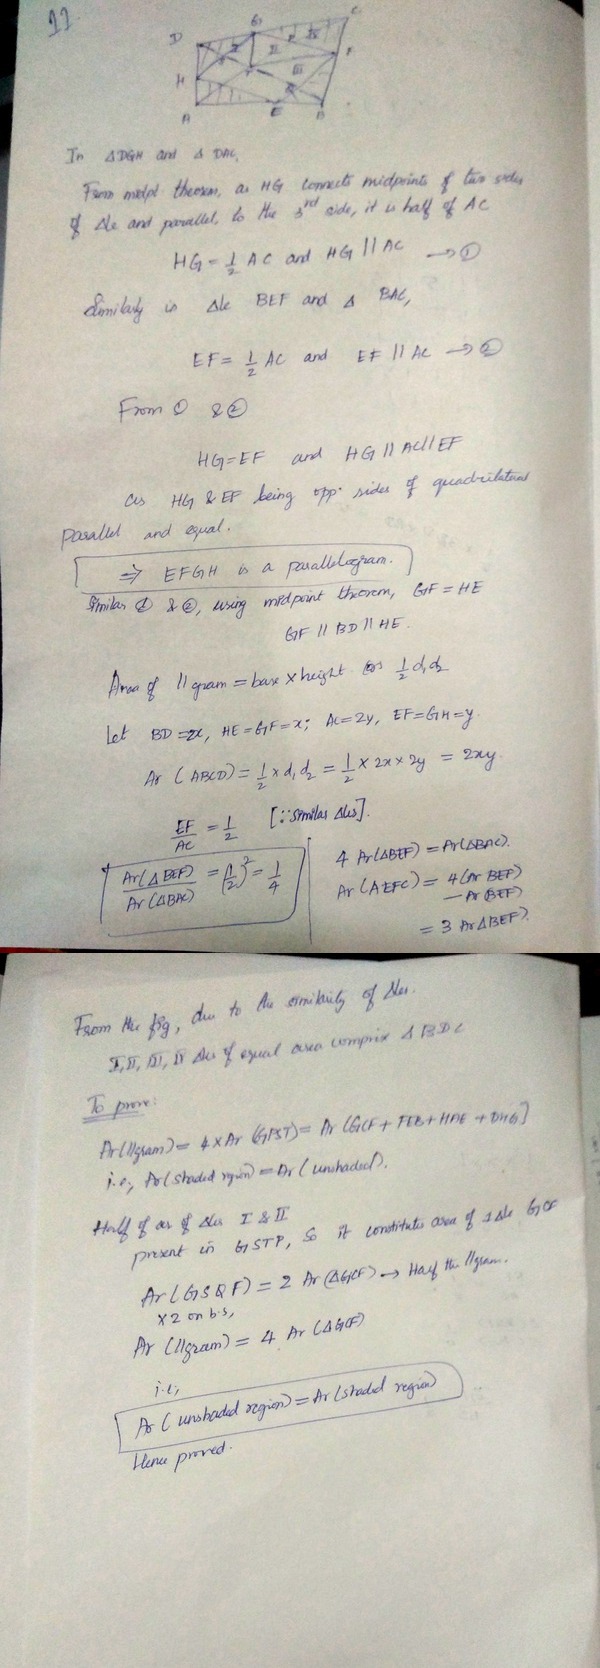 11.
D G C
H F
A E B
In ΔDGH and Δ DAC,
From midpt theorem, as HG connects midpoints of two sides
of Δle and parallel, to the 3rd side, it is half of AC
HG = 1/2 AC and HG || AC → ①
Similarly in Δle BEF and Δ BAC,
EF = 1/2 AC and EF || AC → ②
From ① & ②
HG = EF and HG || AC || EF
as HG & EF being opp. sides of quadrilateral
parallel and equal.
⇒ EFGH is a parallelogram.
Similar ① & ②, using midpoint theorem, GF = HE
GF || BD || HE.
Area of ||gram = base × height or 1/2 d₁d₂
Let BD = 2x, HE = GF = x; AC = 2y, EF = GH = y.
Ar (ABCD) = 1/2 × d₁ d₂ = 1/2 × 2x × 2y = 2xy.
EF/AC = 1/2 [∵ Similar Δles].
Ar(Δ BEF)/Ar(Δ BAC) = (1/2)² = 1/4
4 Ar(ΔBEF) = Ar(ΔBAC).
Ar(AEFC) = 4(Ar BEF)
— Ar(BEF)
= 3 Ar ΔBEF).
From the fig, due to the similarity of Δles.
I, II, III, IV Δles of equal area comprise Δ BDC
To prove:
Ar(||gram) = 4 × Ar (GPST) = Ar [GCF + FEB + HAE + DHG]
i.e., Ar(shaded region) = Ar (unshaded).
Half of ar of Δles I & II
present in GSTP, So it constitutes area of 1 Δle GCF
Ar (GSQF) = 2 Ar (ΔGCF) → Half the ||gram.
×2 on b.s,
Ar (||gram) = 4 Ar (ΔGCF)
i.e,
Ar ( unshaded region) = Ar (shaded region)
Hence proved.